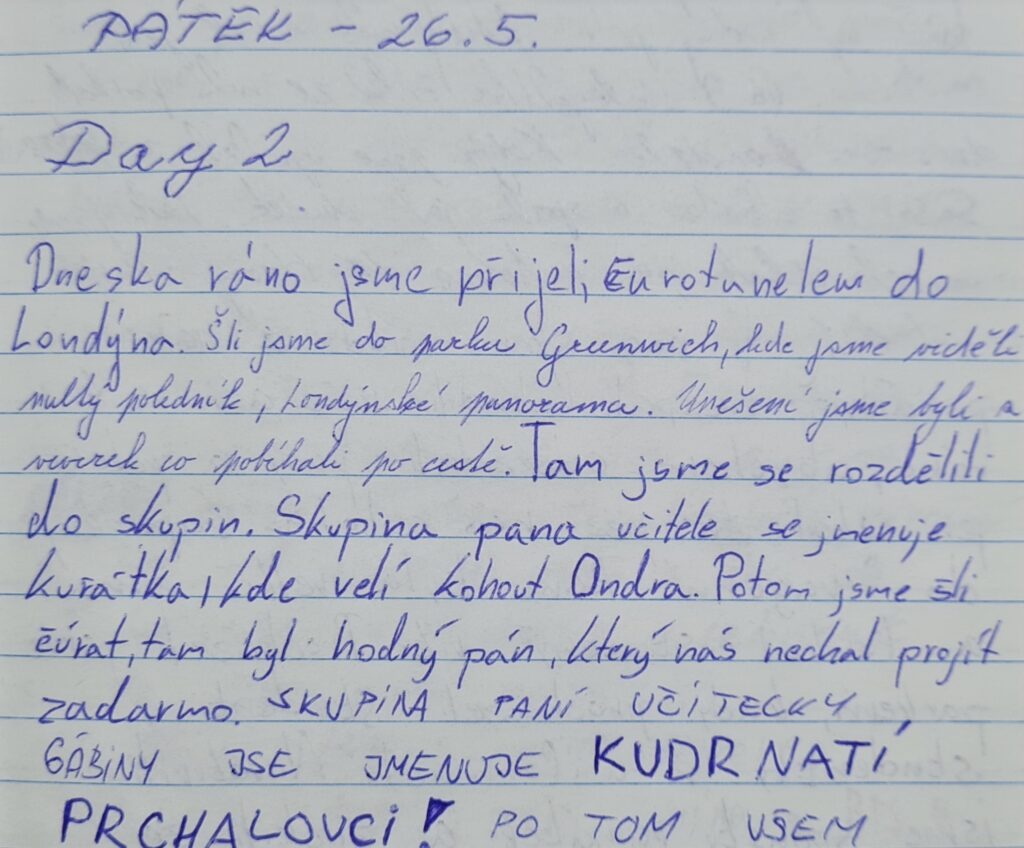 PÁTEK - 26.5.
Day 2
Dneska ráno jsme přijeli Eurotunelem do
Londýna. Šli jsme do parku Greenwich, kde jsme viděli
nultý poledník, Londýnské panorama. Unešení jsme byli z
veverek co pobíhali po cestě. Tam jsme se rozdělili
do skupin. Skupina pana učitele se jmenuje
kuřátka, kde velí kohout Ondra. Potom jsme šli
čúrat, tam byl hodný pán, který nás nechal projít
zadarmo. SKUPINA PANÍ UČITECKY
GÁBINY JSE JMENUJE KUDRNATÍ
PRCHALOVCI! PO TOM VŠEM